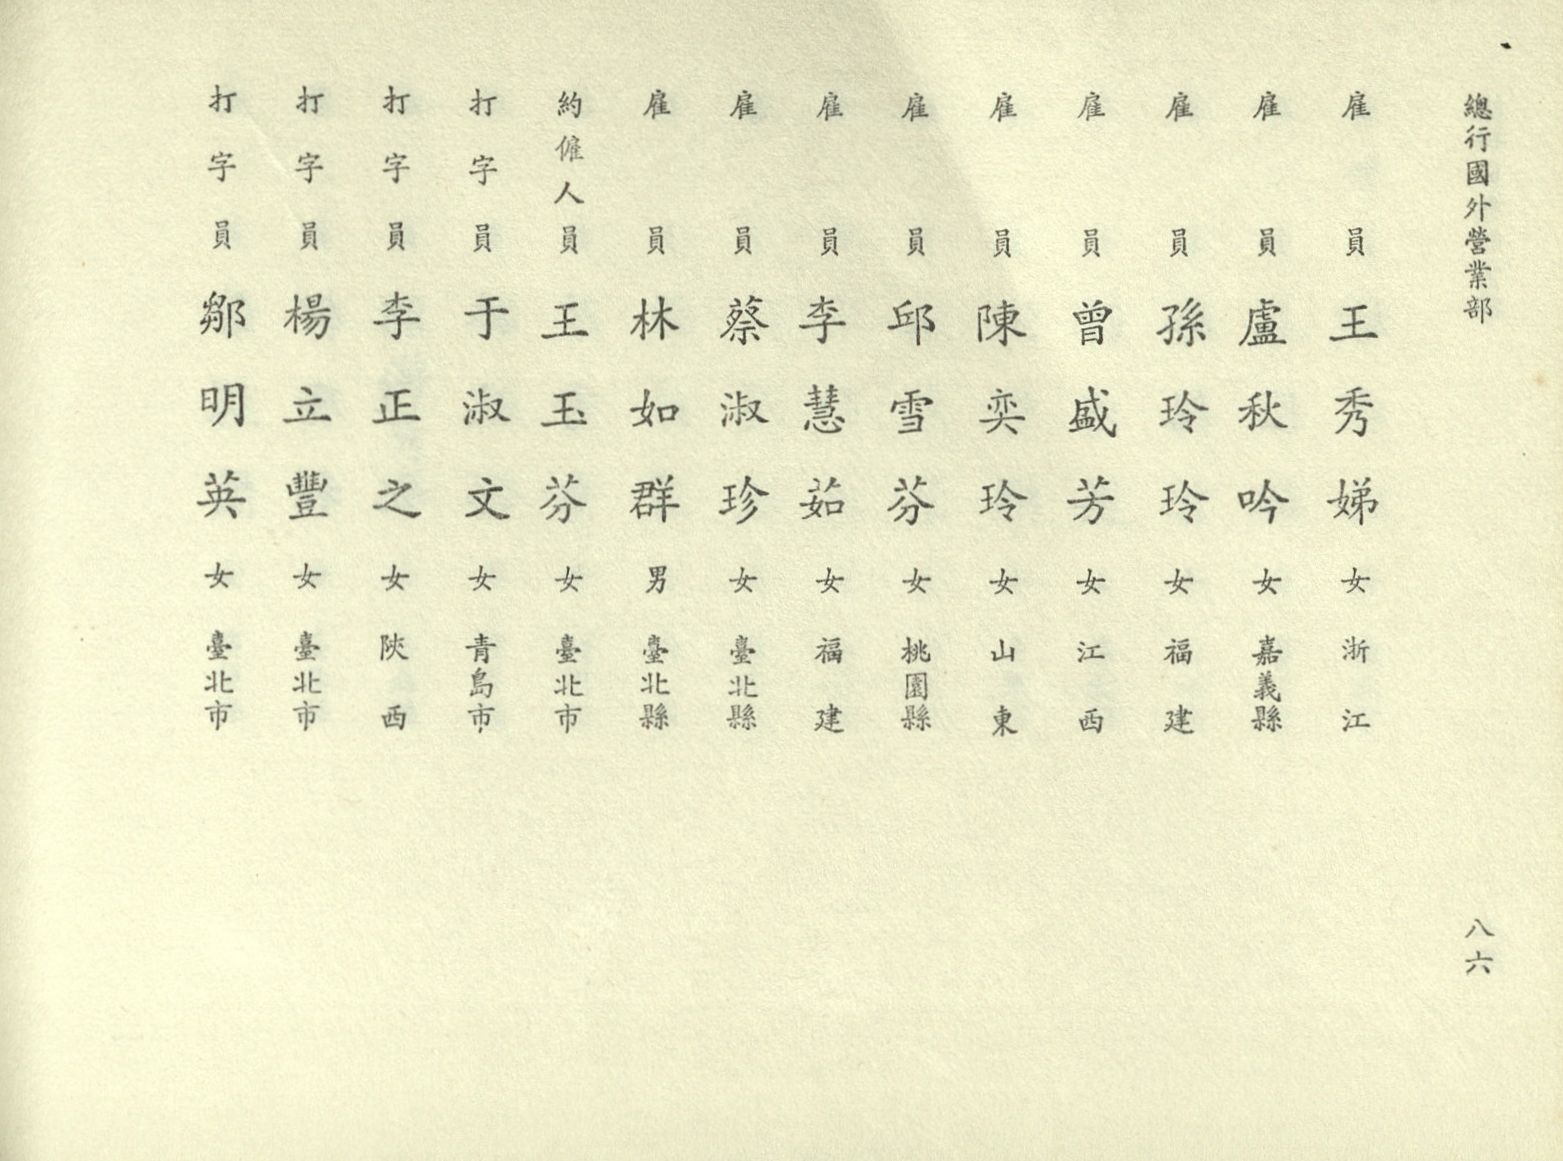 總行國外營業部 八六
雇員 王秀娣 女 浙江
雇員 盧秋吟 女 嘉義縣
雇員 孫玲玲 女 福建
雇員 曾盛芳 女 江西
雇員 陳奕玲 女 山東
雇員 邱雪芬 女 桃園縣
雇員 李慧茹 女 福建
雇員 蔡淑珍 女 臺北縣
雇員 林如群 男 臺北縣
約僱人員 王玉芬 女 臺北市
打字員 于淑文 女 青島市
打字員 李正之 女 陝西
打字員 楊立豐 女 臺北市
打字員 鄒明英 女 臺北市